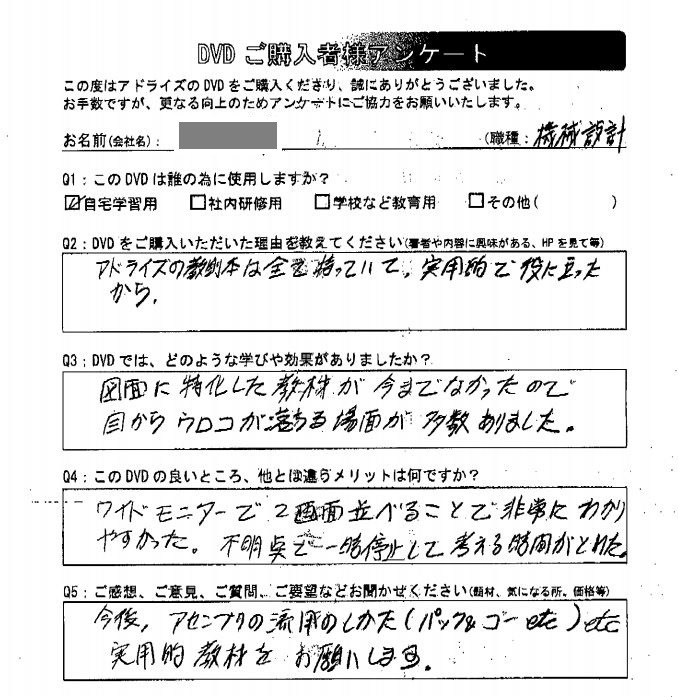 DVD ご購入者様アンケート
この度はアドライズのDVDをご購入くださり、誠にありがとうございました。
お手数ですが、更なる向上のためアンケートにご協力をお願いいたします。
お名前(会社名):
(職種: 機械設計
Q1:このDVDは誰の為に使用しますか?
☑自宅学習用 □社内研修用 □学校など教育用 □その他( )
Q2:DVDをご購入いただいた理由を教えてください(著者や内容に興味がある、HPを見て等)
アドライズの教則本は全て持っていて、実用的で役に立った
から。
Q3:DVDでは、どのような学びや効果がありましたか?
図面に特化した教材が今までなかったので
目からウロコが落ちる場面が多数ありました。
Q4:このDVDの良いところ、他とは違うメリットは何ですか?
ワイドモニターで2画面並べることで非常にわかり
やすかった。不明点で一時停止して考える時間がとれた。
Q5:ご感想、ご意見、ご質問、ご要望などお聞かせください(題材、気になる所、価格等)
今後、アセンブリの流用のしかた(パック&ゴーetc)etc
実用的教材をお願いします。